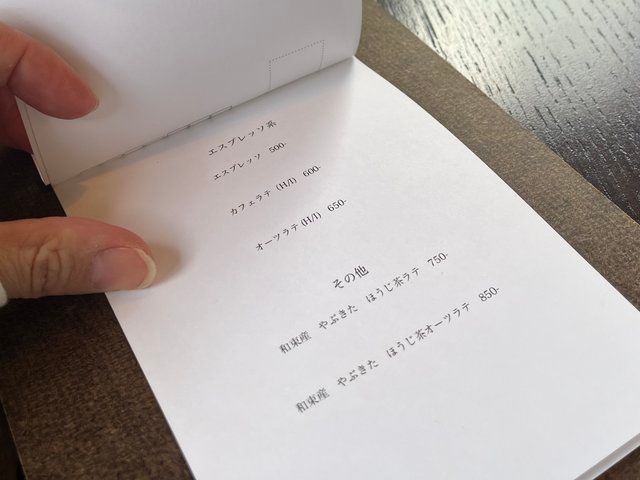 エスプレッソ系
エスプレッソ 500-
カフェラテ (H/I) 600-
オーツラテ (H/I) 650-
その他
和束産 やぶきた ほうじ茶ラテ 750-
和束産 やぶきた ほうじ茶オーツラテ 850-